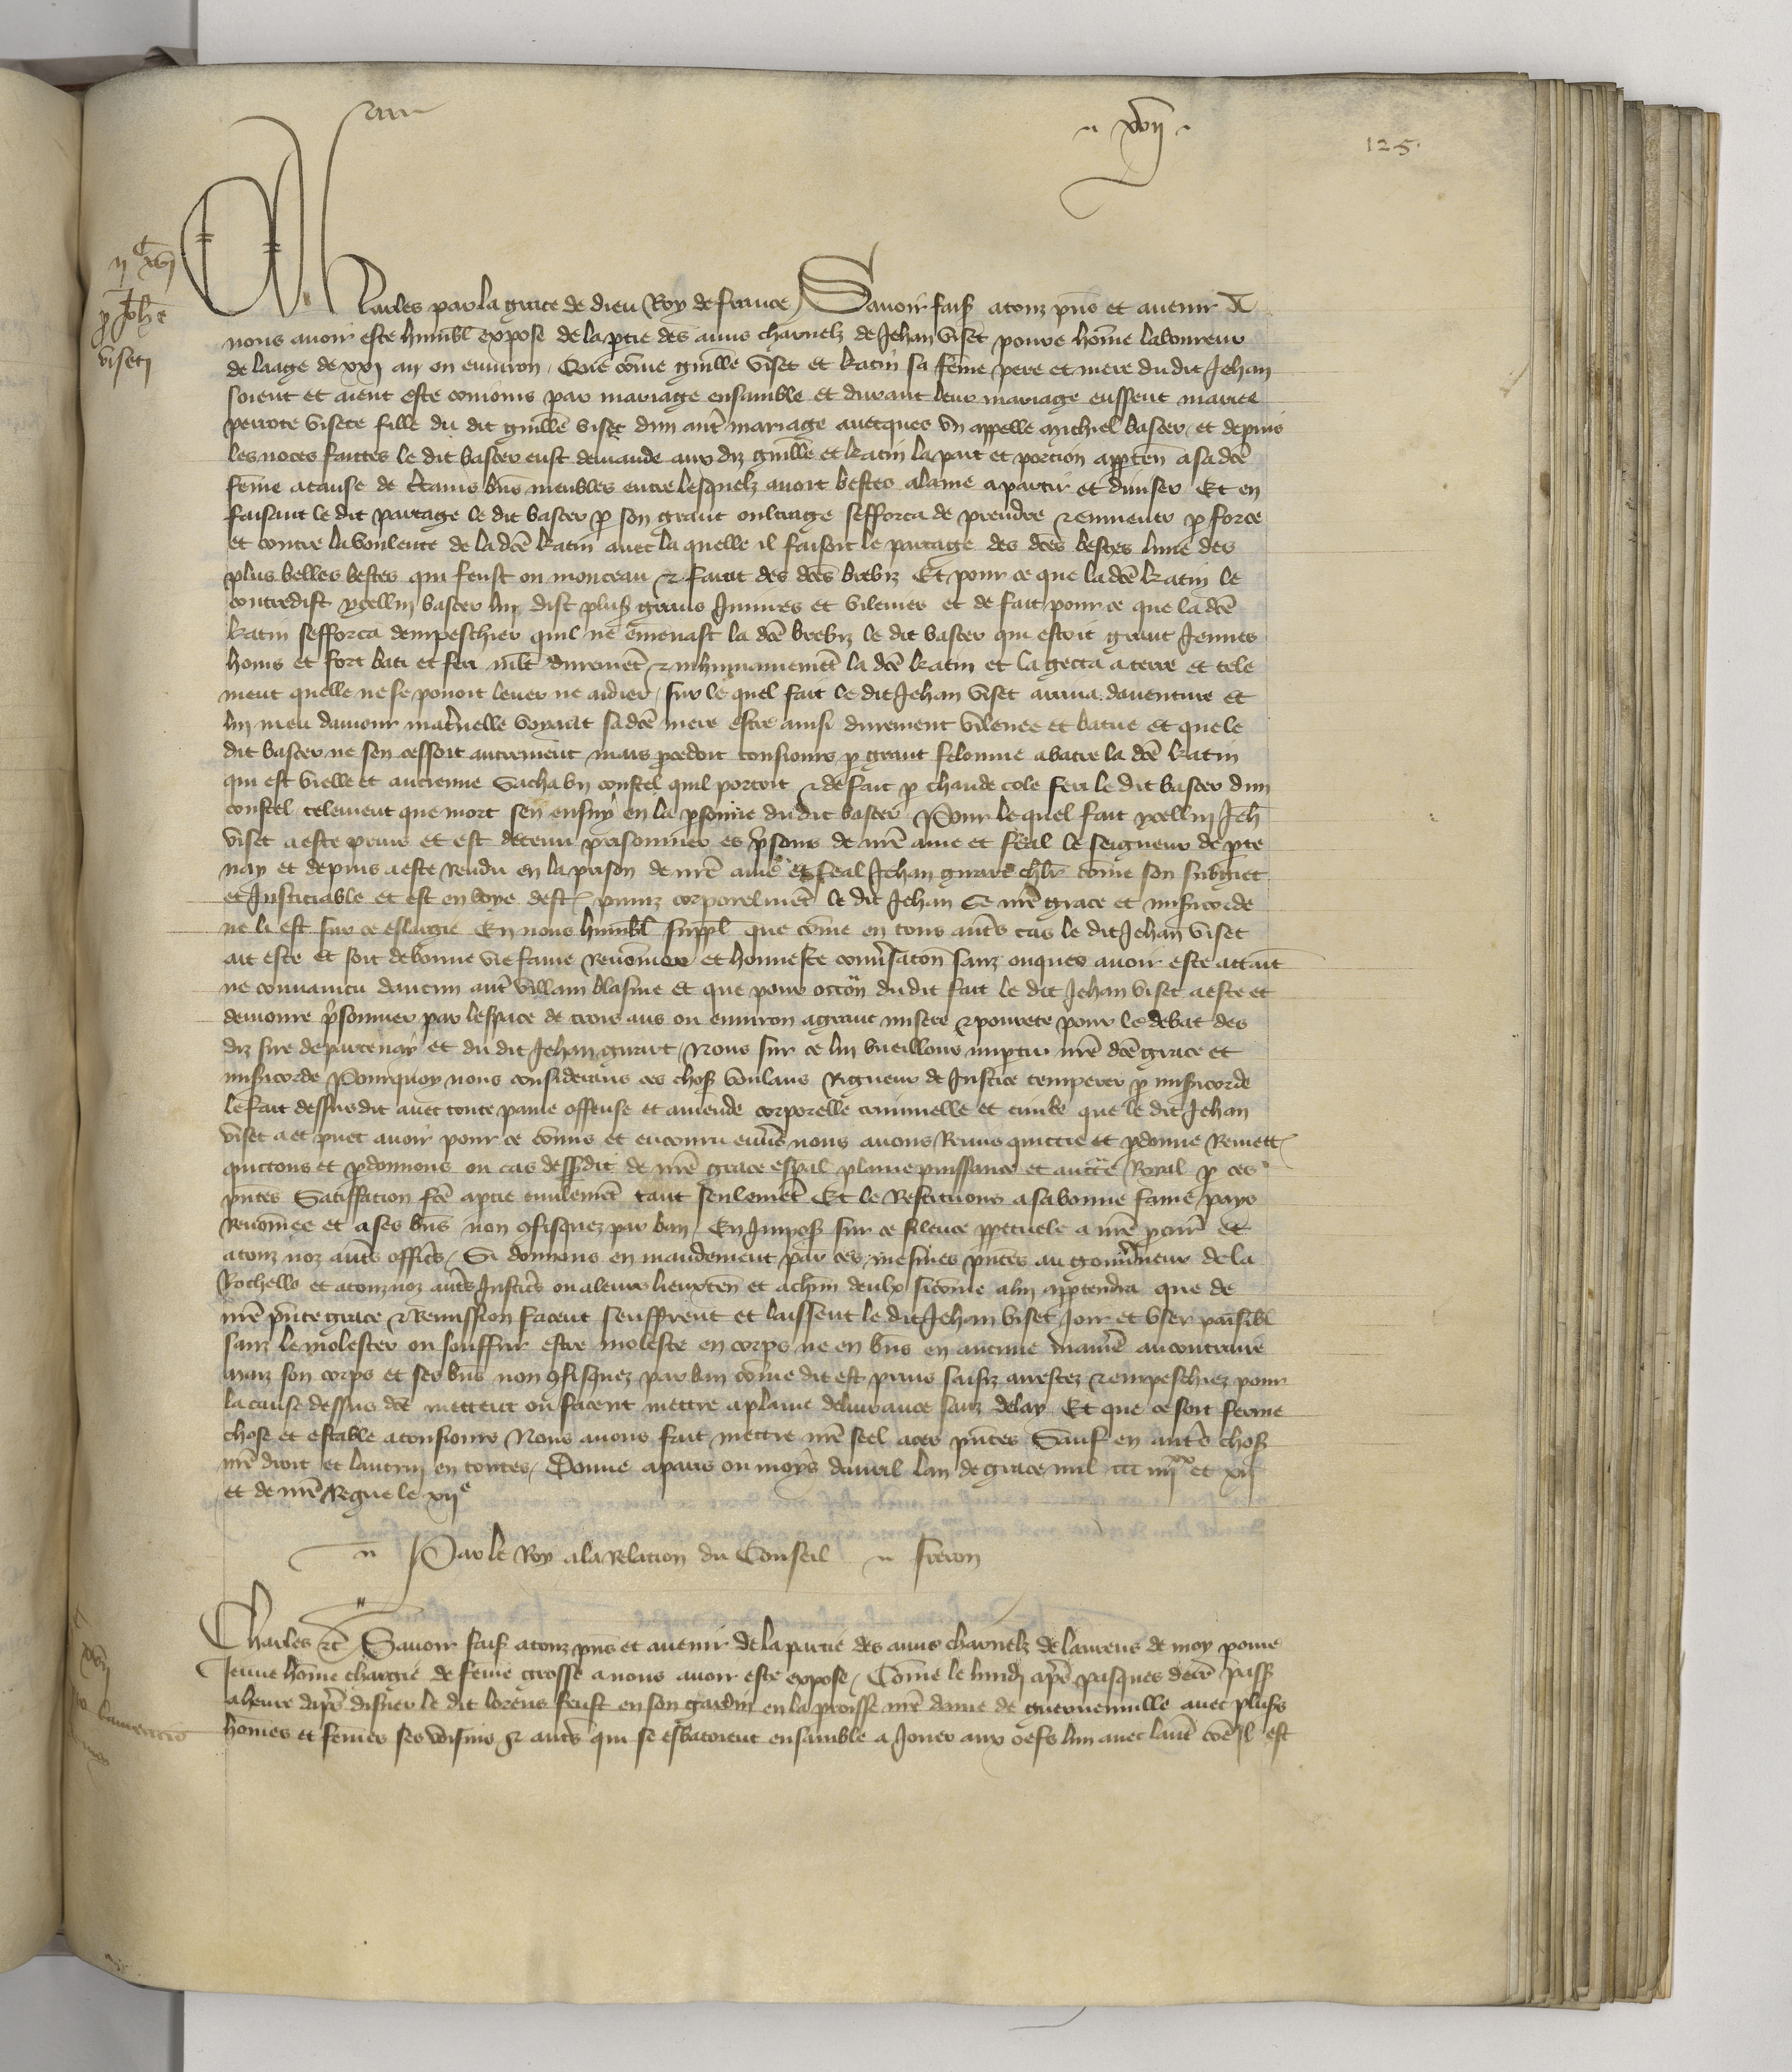 xvii
125.
ii^c xvi
p Joh̄e
viseti
Charles par la grace de dieu Roy de france Savoir faiſ a touz p̄ns et avenir A
nous avoir este humbl̄ expose de la ptie des amis charnelz de Jehan viset povre hōme laboureur
de laage de xxj an ou environ. Que cōme guill̄e viset et katin sa fēme pere et mere dudit Jehan
soient et aient este conioins par mariage ensamble et durant leur mariage eussent mariee
perrote visete fille du dit guill̄e viset dun aut̄ mariage avecques un appelle michiel baster et depuis
les noces faictes le dit baster eust demande aux diz guill̄e et katin la part et porcion apptēn a sa dcē
fēme a cause de c̄tains bn̄s meubles entre lesquelz avoit bestes a laine a partir et diviser Et en
faisant le dit partage le dit baster p son grant oultrage sefforca de prendre et emmener p force
et contre la voulente de la dcē katin avec la quelle il faisoit le partage des dcēs bestes lune des
plus belles bestes qui feust ou monceau et fait des dcēs brebiz Et pour ce que la dcē katin le
contredist ycellui baster lui dist plusr̄s grans Iniures et vilenies et de fait pour ce que la dcē
katin sefforca dempeschier quil ne ēmenast la dcē brebiz le dit baster qui estoit grant Jeunes
homs et fort bati et feri ml̄t durem̄t et inhumainem̄t la dcē katin et la gecta a terre et tele
ment quelle ne se povoit lever ne aidier. sur le quel fait le dit Jehan viset ariva daventure et
lui meu damour mat̄nelle voyant sa dcē mere estre ainsi durement vilenee et batue et que le
dit baster ne sen cessoit autrement mais pcedoit tousiours p grant felonnie a batre la dcē katin
qui est vielle et ancienne Sacha un coustel quil portoit et de fait p chaude cole feri le dit baster dun
coustel telement que mort sen ensuy en la psonne dudit baster Pour le quel fait ycellui Jeh̄
viset a este prins et est detenu prisonnier es p̄sons de nr̄e ame et feal le seigneur de pte
nay et depuis a este Rendu en la prison de nr̄e ame et feal Jehan guart chlr̄ cōme son subgiet
et Justiciable et est en voye destr̄ puniz corporelmēt le dit Jehan Se nr̄e grace et mis̄icorde
ne li est sur ce eslargie En nous humbl̄ suppl̄ que cōme en tous aut̄s cas le dit Jehan viset
ait este et soit de bonne vie fame renōmee et honneste conv̄sacōn sanz onques avoir este attaīt
ne convaincu daucun aut̄ villain blasme et que pour occōn dudit fait le dit Jehan viset a este et
demoure p̄sonnier par lespace de trois ans ou environ a grant misere et povrete pour le debat des
diz sire de partenay et du dit Jehan guart. Nous sur ce lui vueillons imptir nr̄e dcē grace et
mis̄icorde Pourquoy nous considerans ces choſ voulans Rigueur de Justice temperer p mis̄icorde
le fait dessusdit avec toute paine offense et amende corporelle criminelle et civile que le dit Jehan
viset a et puet avoir pour ce cōmis et encouru env̄s nous avons Remis quictie et pdonne Remett̄
quictons et pdonnons ou cas dessusdit de nr̄e grace esp̄al plaine puissance et auct̄e Royal p ces
p̄ntes Satiffacion fcē a ptie civilemēt tant seulemēt Et le Restituons a sa bonne fame pays
Renōmee et a ses bn̄s non ꝯfisquez par ban En Imposſ sur ce silence ppetuele a nr̄e pcur̄ et
a touz noz aut̄s offic̄s. Si donnons en mandement par ces mesmes p̄ntes au gouv̄neur de la
Rochelle et a touz noz aut̄s Justic̄s ou a leurs lieuxten̄ et a chūn deulx si cōme a lui apptendra que de
nr̄e p̄nte grace et Remission facent seuffrent et laissent le dit Jehan viset Joir et user paisibl̄
sanz le molester ou souffrir estre moleste en corps ne en bn̄s en aucune maniē au contraire
maiz son corps et ses bn̄s non ꝯfisquez par ban cōme dit est prins saisiz arrestez et empeschiez pour
la cause dessus dcē mettent ou facent mettre a plaine delivrance sanz delay Et que ce soit ferme
chose et estable a tousiours Nous avons fait mettre nr̄e seel a ces p̄ntes Sauf en aut̄s choſ
nr̄e droit et lautruy en toutes. Donne a paris ou moys davril lan de grace mil ccc iiij^xx et xij
et de nr̄e Regne le xij^e
Par le Roy a la Relacion du Conseil freron
Charles etc̄ Savoir faiſ a touz p̄ns et avenir de la partie des amis charnelz de laurens de moy povre
Jeune hōme chargie de fēme grosse a nous avoir este expose. Cōme le lundi aprs̄ pasques derr̄ passſ
a heure daprs̄ disner le dit lorens feust en son gardin en la proisse nr̄e dame de guernemville avec plusrs̄
hōmes et fēmes ses voisins et aut̄s qui se esbatoient ensamble a Jouer aux oefs lun avec laut̄ cōe Il est
xvii
pro laurencio
de moy